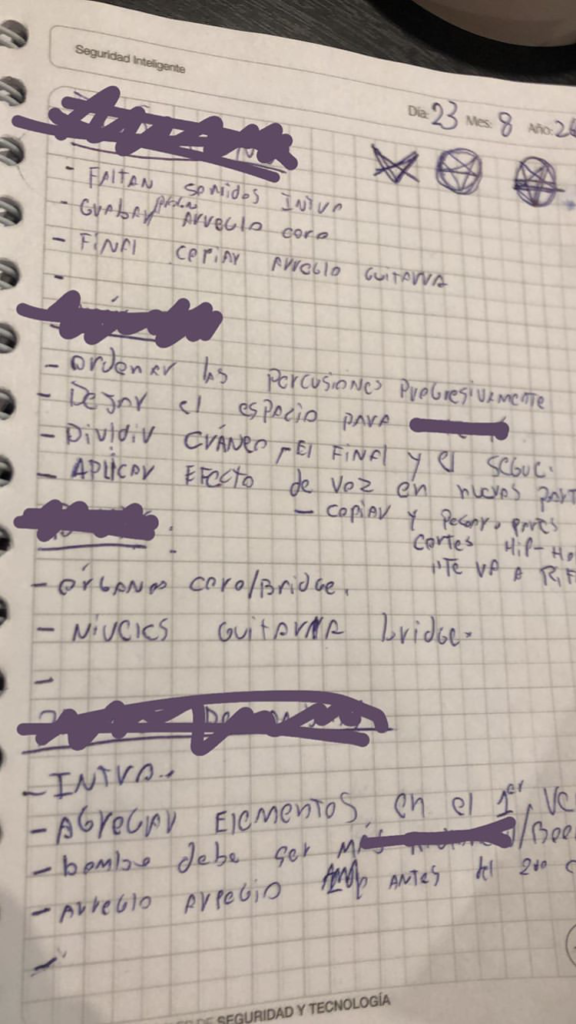 Seguridad Inteligente
Día: 23 Mes: 8 Año: 20
- FALTAN SONIDOS INTRO
- GRABAR ARREGLO CORO
- FINAL COPIAR ARREGLO GUITARRA
-
- ORDENAR LAS PERCUSIONES PROGRESIVAMENTE
- DEJAR el ESPACIO PARA
- DIVIDIR CRÁNEO, EL FINAL y el
- APLICAR EFECTO de voz en nuevas
- COPIAR y PEGAR
CORTES HIP-HO
"TE VA A
:
- ÓRGANO CORO/BRIDGE.
- NIVELES GUITARRA bridge.
-
- INTRO..
- AGREGAR ELEMENTOS en el 1er VE
- bombo debe ser MÁS
- ARREGLO ARPEGIO ANTES del 2do
-
DE SEGURIDAD Y TECNOLOGÍA